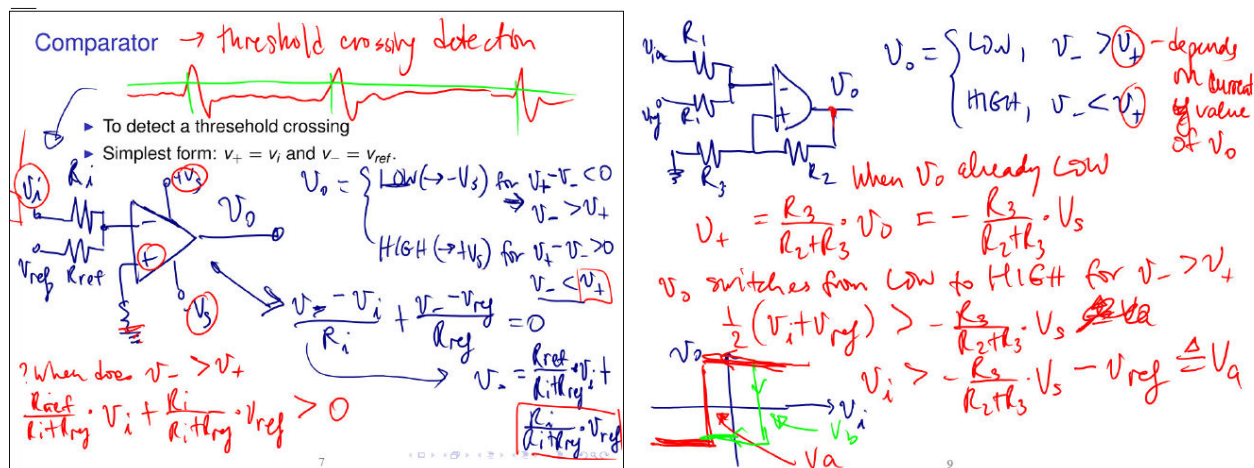 Comparator → threshold crossing detection
▶ To detect a thresehold crossing
▶ Simplest form: v+ = vi and v− = vref.
vi
Ri
+Vs
vo
vref
Rref
−
+
−Vs
vo = { LOW (→ −Vs) for v+ − v− < 0
→ v− > v+
HIGH (→ +Vs) for v+ − v− > 0
v− < v+
(v− − vi)/Ri + (v− − vref)/Rref = 0
v− = Rref/(Ri+Rref) · vi +
Ri/(Ri+Rref) · vref
? When does v− > v+
Rref/(Ri+Rref) · vi + Ri/(Ri+Rref) · vref > 0
7
vin
Ri
vref
Ri
−
+
vo
R3
R2
vo = { LOW, v− > v+ - depends
on current
value
HIGH, v− < v+
of vo
When vo already LOW
v+ = R3/(R2+R3) · vo = − R3/(R2+R3) · Vs
vo switches from LOW to HIGH for v− > v+
1/2 (vi + vref) > − R3/(R2+R3) · Vs
vi > − R3/(R2+R3) · Vs − vref ≜ Va
vo
vi
Vb
Va
9